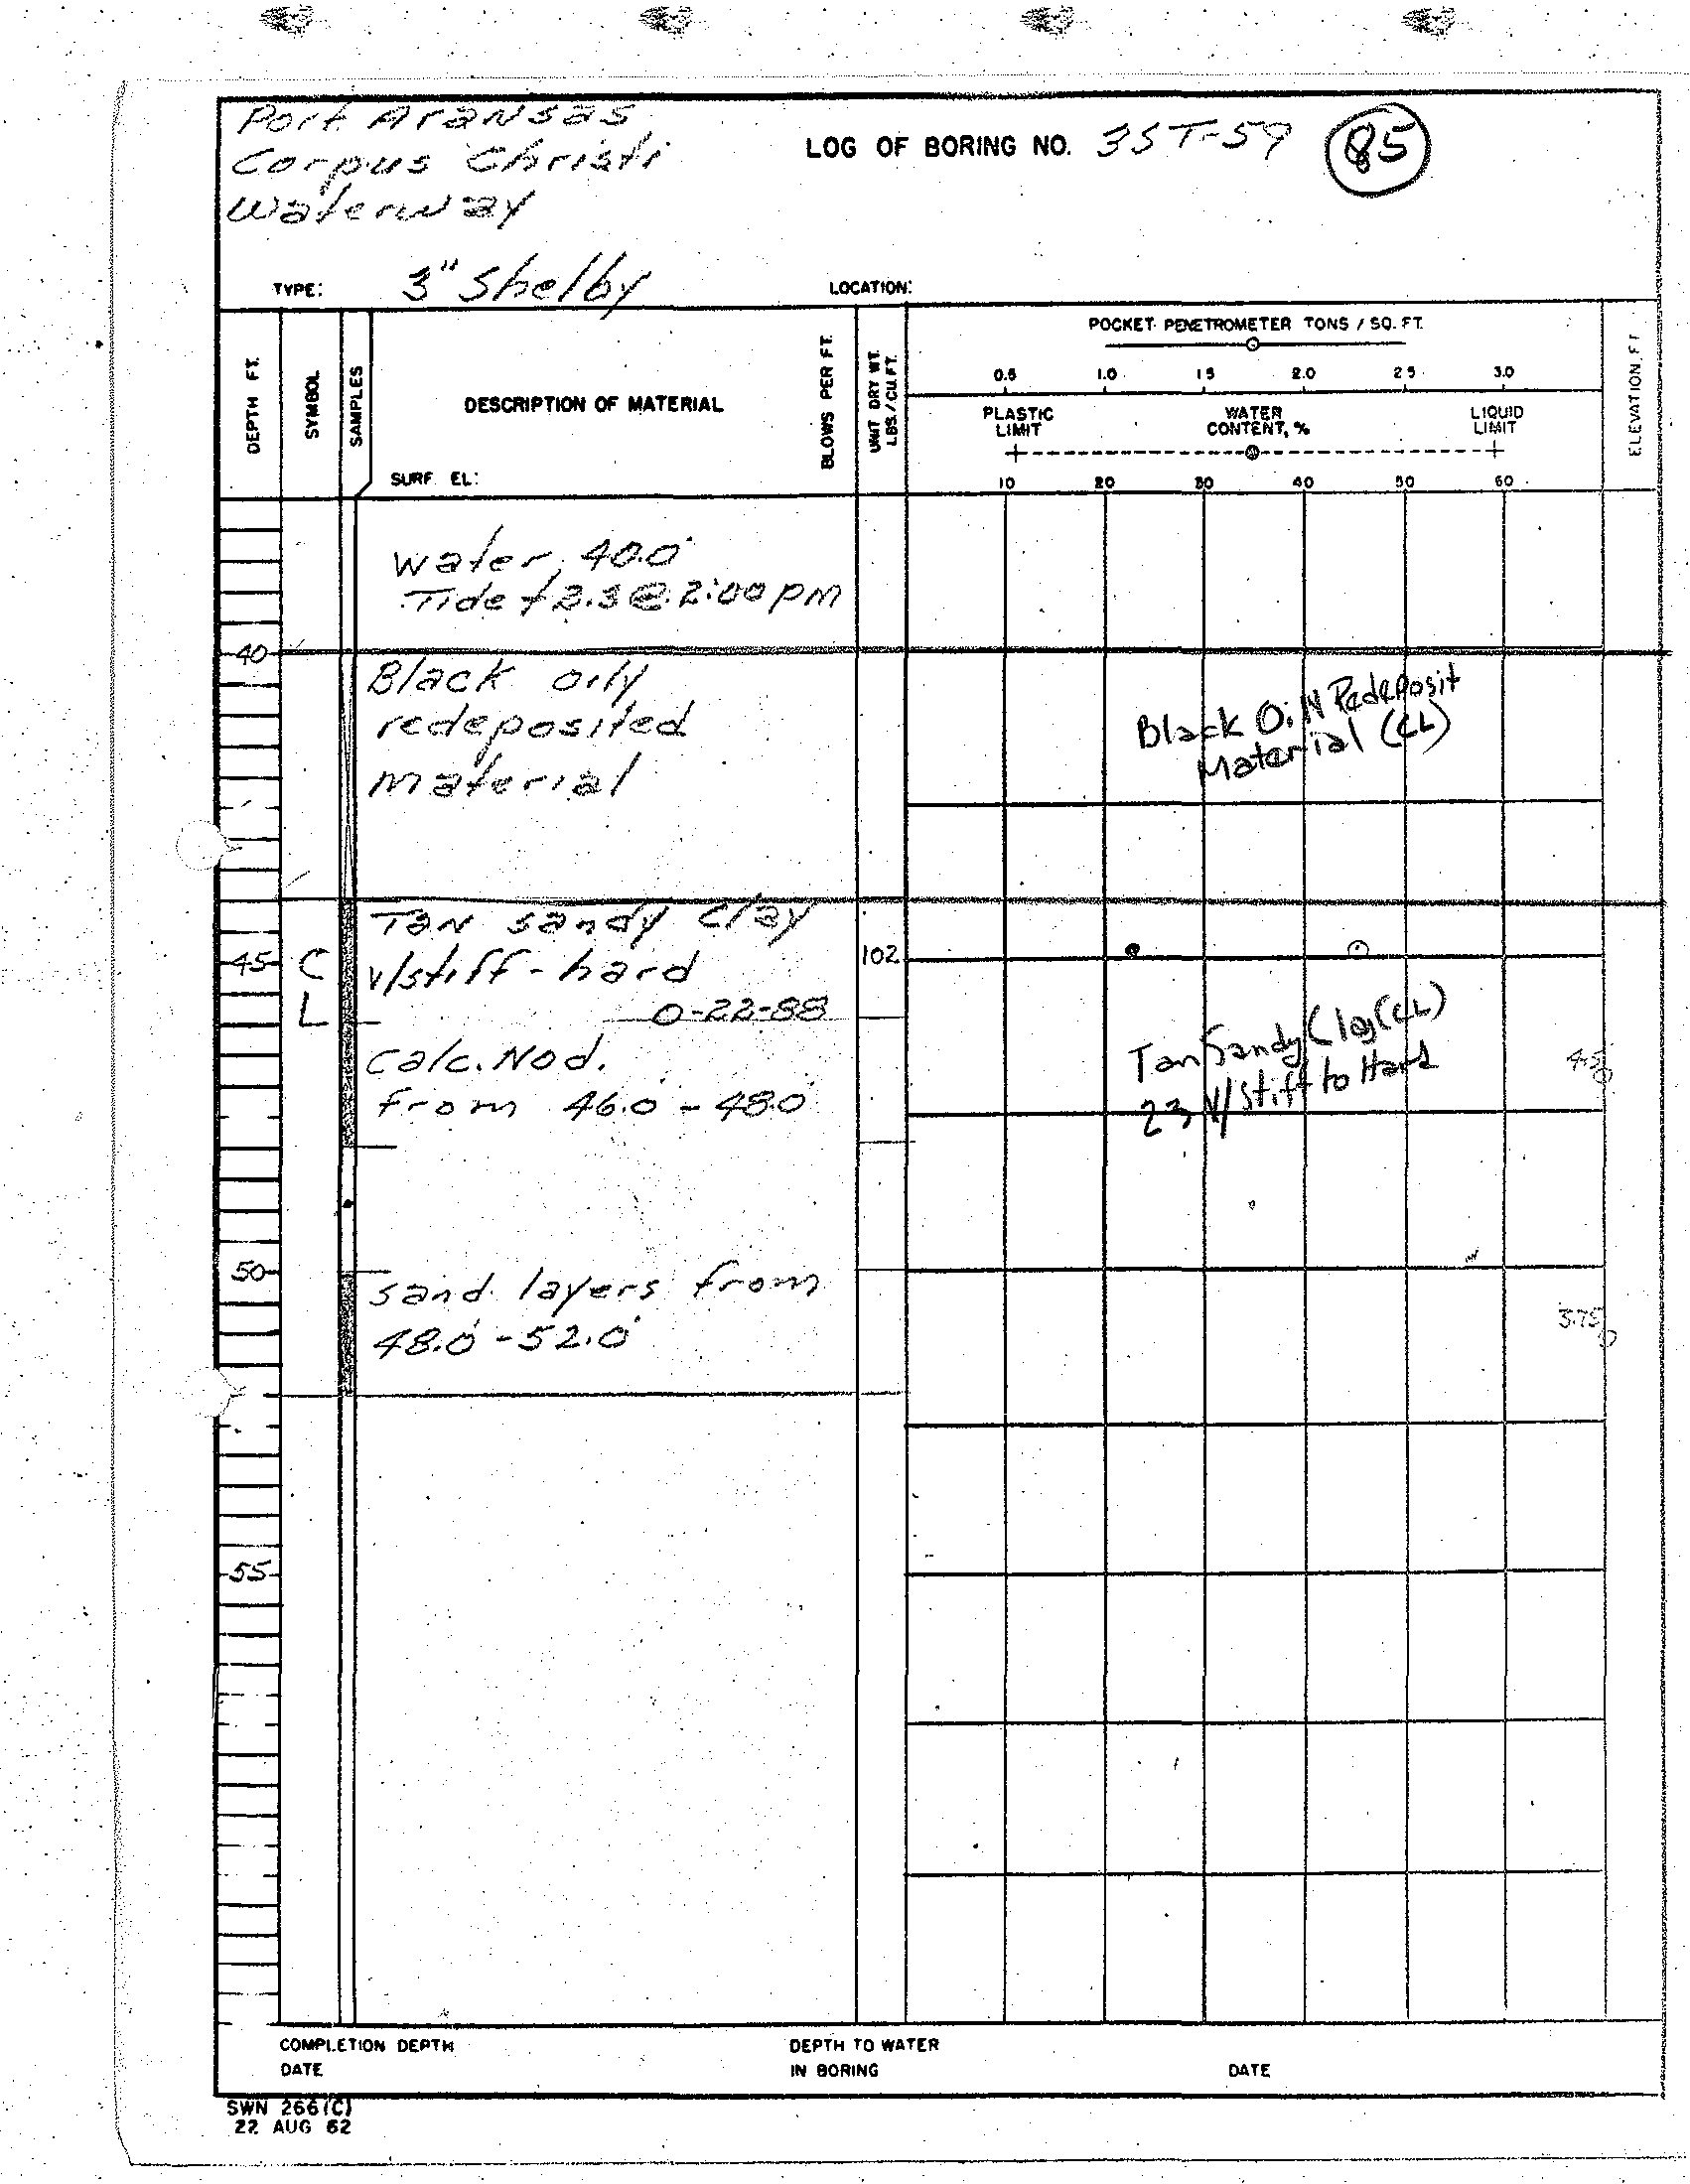 Port Aransas
Corpus Christi
Waterway
LOG OF BORING NO. 3ST-59
85
TYPE: 3" Shelby
LOCATION:
DEPTH FT.
SYMBOL
SAMPLES
DESCRIPTION OF MATERIAL
SURF. EL:
BLOWS PER FT.
UNIT DRY WT.
LBS./CU.FT.
POCKET PENETROMETER TONS / SQ. FT.
0.5 1.0 1.5 2.0 2.5 3.0
PLASTIC
LIMIT
WATER
CONTENT, %
LIQUID
LIMIT
10 20 30 40 50 60
ELEVATION, FT
Water, 40.0'
Tide +2.3 @ 2:00 PM
40
Black oily
redeposited
material
Black Oil Redeposit
Material (CL)
Tan sandy clay
45
C
L
v/stiff - hard
102
0-22-88
Calc. Nod.
from 46.0' - 48.0'
Tan Sandy Clay (CL)
23 V/Stiff to Hard
4.5
50
sand layers from
48.0' - 52.0'
3.75
55
COMPLETION DEPTH
DATE
DEPTH TO WATER
IN BORING
DATE
SWN 266(C)
22 AUG 62